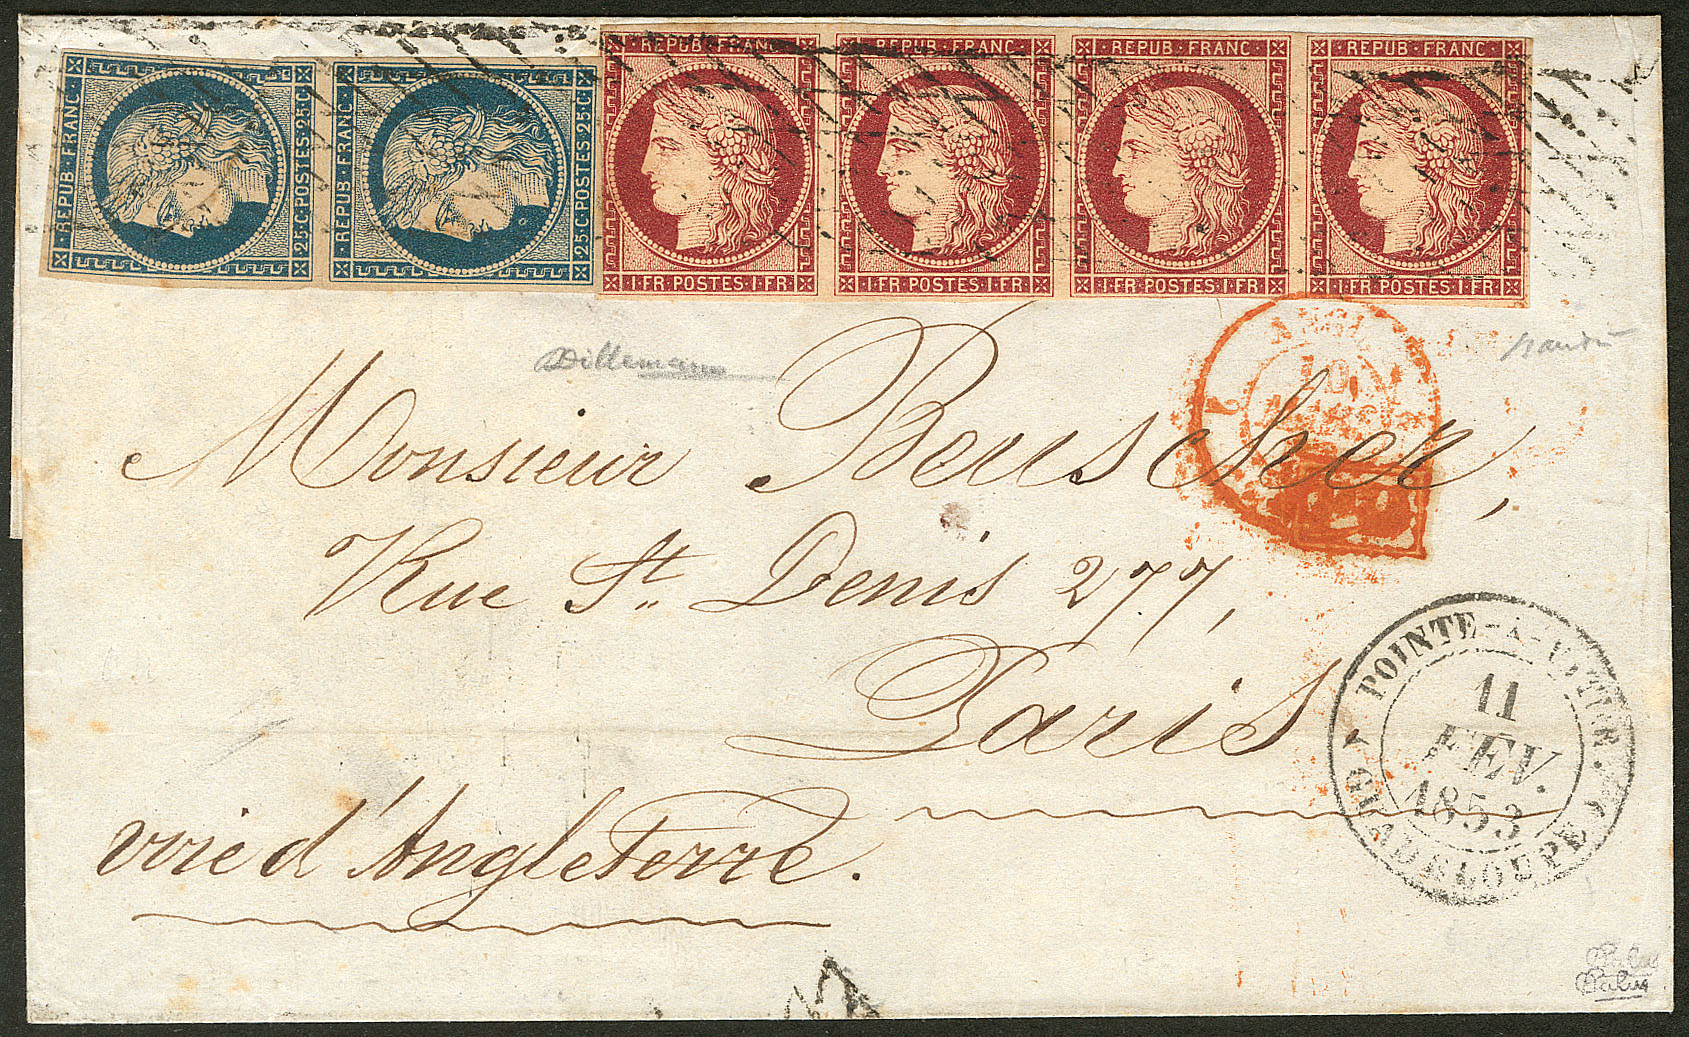 REPUB·FRANC·
25·C·POSTES·25·C
REPUB·FRANC·
25·C·POSTES·25·C
REPUB·FRANC
1·FR·POSTES·1·FR
REPUB·FRANC
1·FR·POSTES·1·FR
REPUB·FRANC
1·FR·POSTES·1·FR
REPUB·FRANC
1·FR·POSTES·1·FR
Dillemann
ANGL
10
MARS
Monsieur Beuscher,
Rue St. Denis 277,
Paris
voie d'Angleterre.
POINTE-A-PITRE.
11
FEV.
1853
GUADELOUPE
Calves
Calves